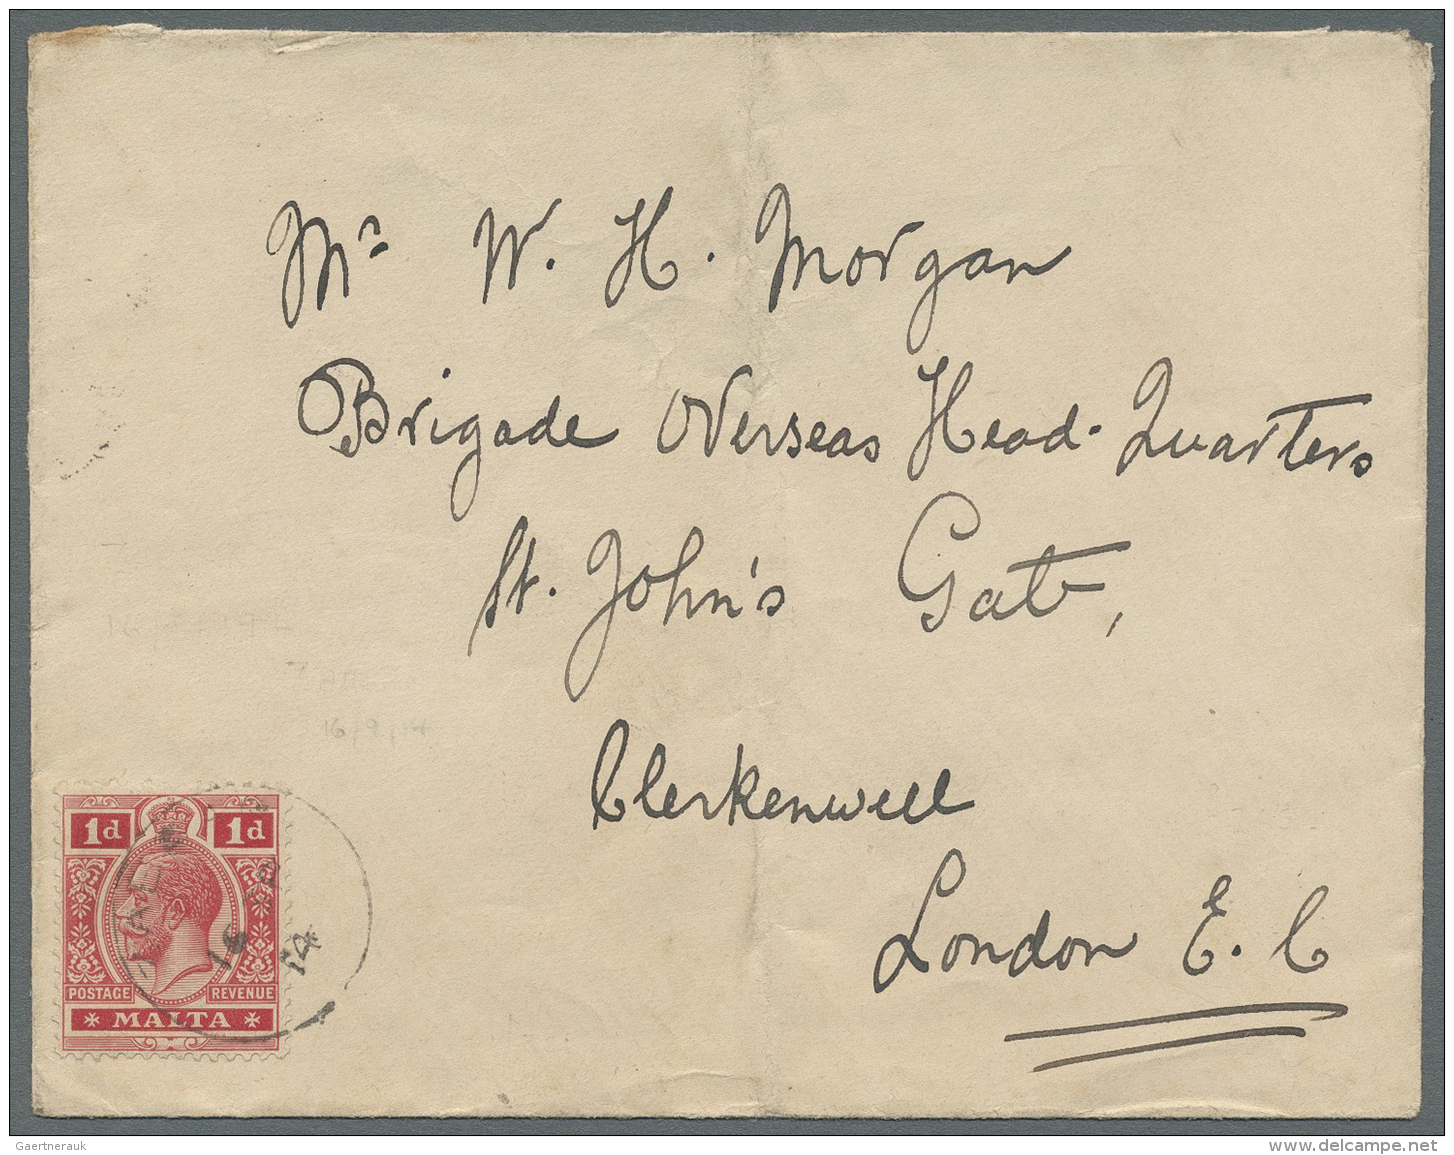 Mr W. H. Morgan
Brigade Overseas Head-Quarters
St. John's Gate,
Clerkenwell
London E.C
16/9/14
1d 1d
14
POSTAGE REVENUE
MALTA
Gaertnerauk
www.delcampe.net